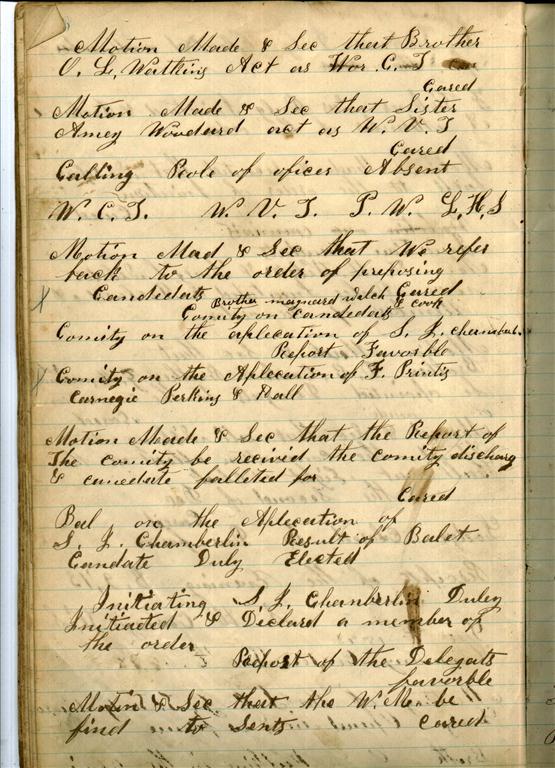 Motion Made & Sec that Brother
O. L. Watkins Act as Wor C. T
Cared
Motion Made & Sec that Sister
Amey Woodard act as W. V. T
Cared
Calling Role of ofices Absent
W. C. T. W. V. T. P. W. L. H. S
Motion Mad & Sec that We refer
back to the order of preposing
Candidats Cared
Brother maynard welch & cook
Comity on candidats
Comity on the aplecation of S. J. Chamberl
Report Favorble
Comity on the Aplecation of F. Prints
Carnegie Perkins & Ball
Motion Maade & Sec that the Report of
The comity be recivid the comity discharg
& canedate balleted for
Cared
Bal on the Aplecation of
S. J. Chamberlin Result of Balet
Candate Duly Elected
Initiating S. J. Chamberlin Duley
Initiacted & Declard a member of
the order
Report of the Delegats
favorble
Motin & Sec that the W. M. be
find 10 Sents Cared